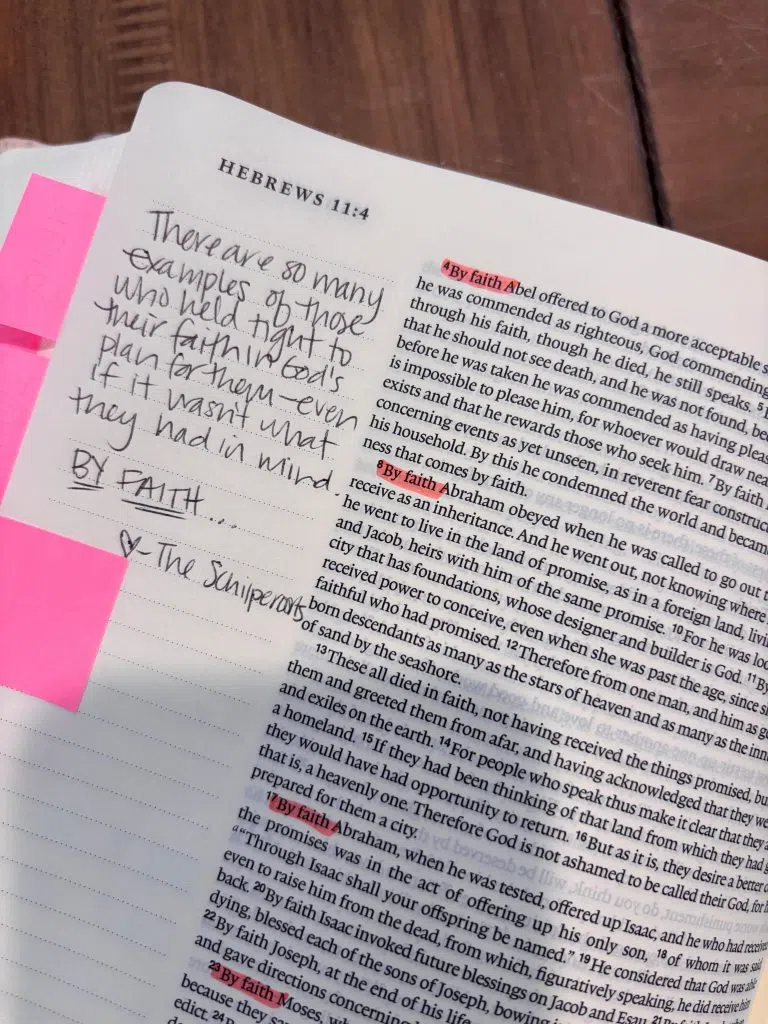 HEBREWS 11:4
There are so many
examples of those
who held tight to
their faith in God's
plan for them-even
if it wasn't what
they had in mind.
BY FAITH...
♡-The Schilperoorts
⁴By faith Abel offered to God a more acceptable
he was commended as righteous, God commending
through his faith, though he died, he still speaks. ⁵
that he should not see death, and he was not found,
before he was taken he was commended as having
is impossible to please him, for whoever would draw
exists and that he rewards those who seek him. ⁷By faith
concerning events as yet unseen, in reverent fear
his household. By this he condemned the world and
ness that comes by faith.
⁸By faith Abraham obeyed when he was called to go out
receive as an inheritance. And he went out, not knowing where
he went to live in the land of promise, as in a foreign land,
and Jacob, heirs with him of the same promise. ¹⁰For he was
city that has foundations, whose designer and builder is God. ¹¹By
received power to conceive, even when she was past the age, since
faithful who had promised. ¹²Therefore from one man, and him as
born descendants as many as the stars of heaven and as many as the
of sand by the seashore.
¹³These all died in faith, not having received the things promised,
them and greeted them from afar, and having acknowledged that they
and exiles on the earth. ¹⁴For people who speak thus make it clear that they
a homeland. ¹⁵If they had been thinking of that land from which they had
they would have had opportunity to return. ¹⁶But as it is, they desire a better
that is, a heavenly one. Therefore God is not ashamed to be called their God, for
prepared for them a city.
¹⁷By faith Abraham, when he was tested, offered up Isaac, and he who had received
the promises was in the act of offering up his only son, ¹⁸of whom it was said
"“Through Isaac shall your offspring be named.” ¹⁹He considered that God was
even to raise him from the dead, from which, figuratively speaking, he did receive him
back. ²⁰By faith Isaac invoked future blessings on Jacob and Esau. ²¹By
dying, blessed each of the sons of Joseph, bowing
²²By faith Joseph, at the end of his life
and gave directions concerning
²³By faith Moses,
because they
edict. ²⁴